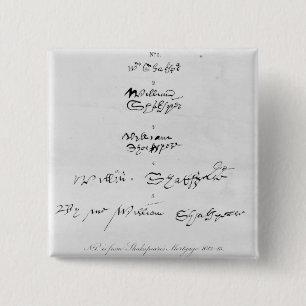 No. 1.
Wm Shakspe
2
William
Shakspere
3
William
Shakspere
4
William Shakspere
5
By me William Shakspeare
No. 1. is from Shakspeare's Mortgage 1612-13.